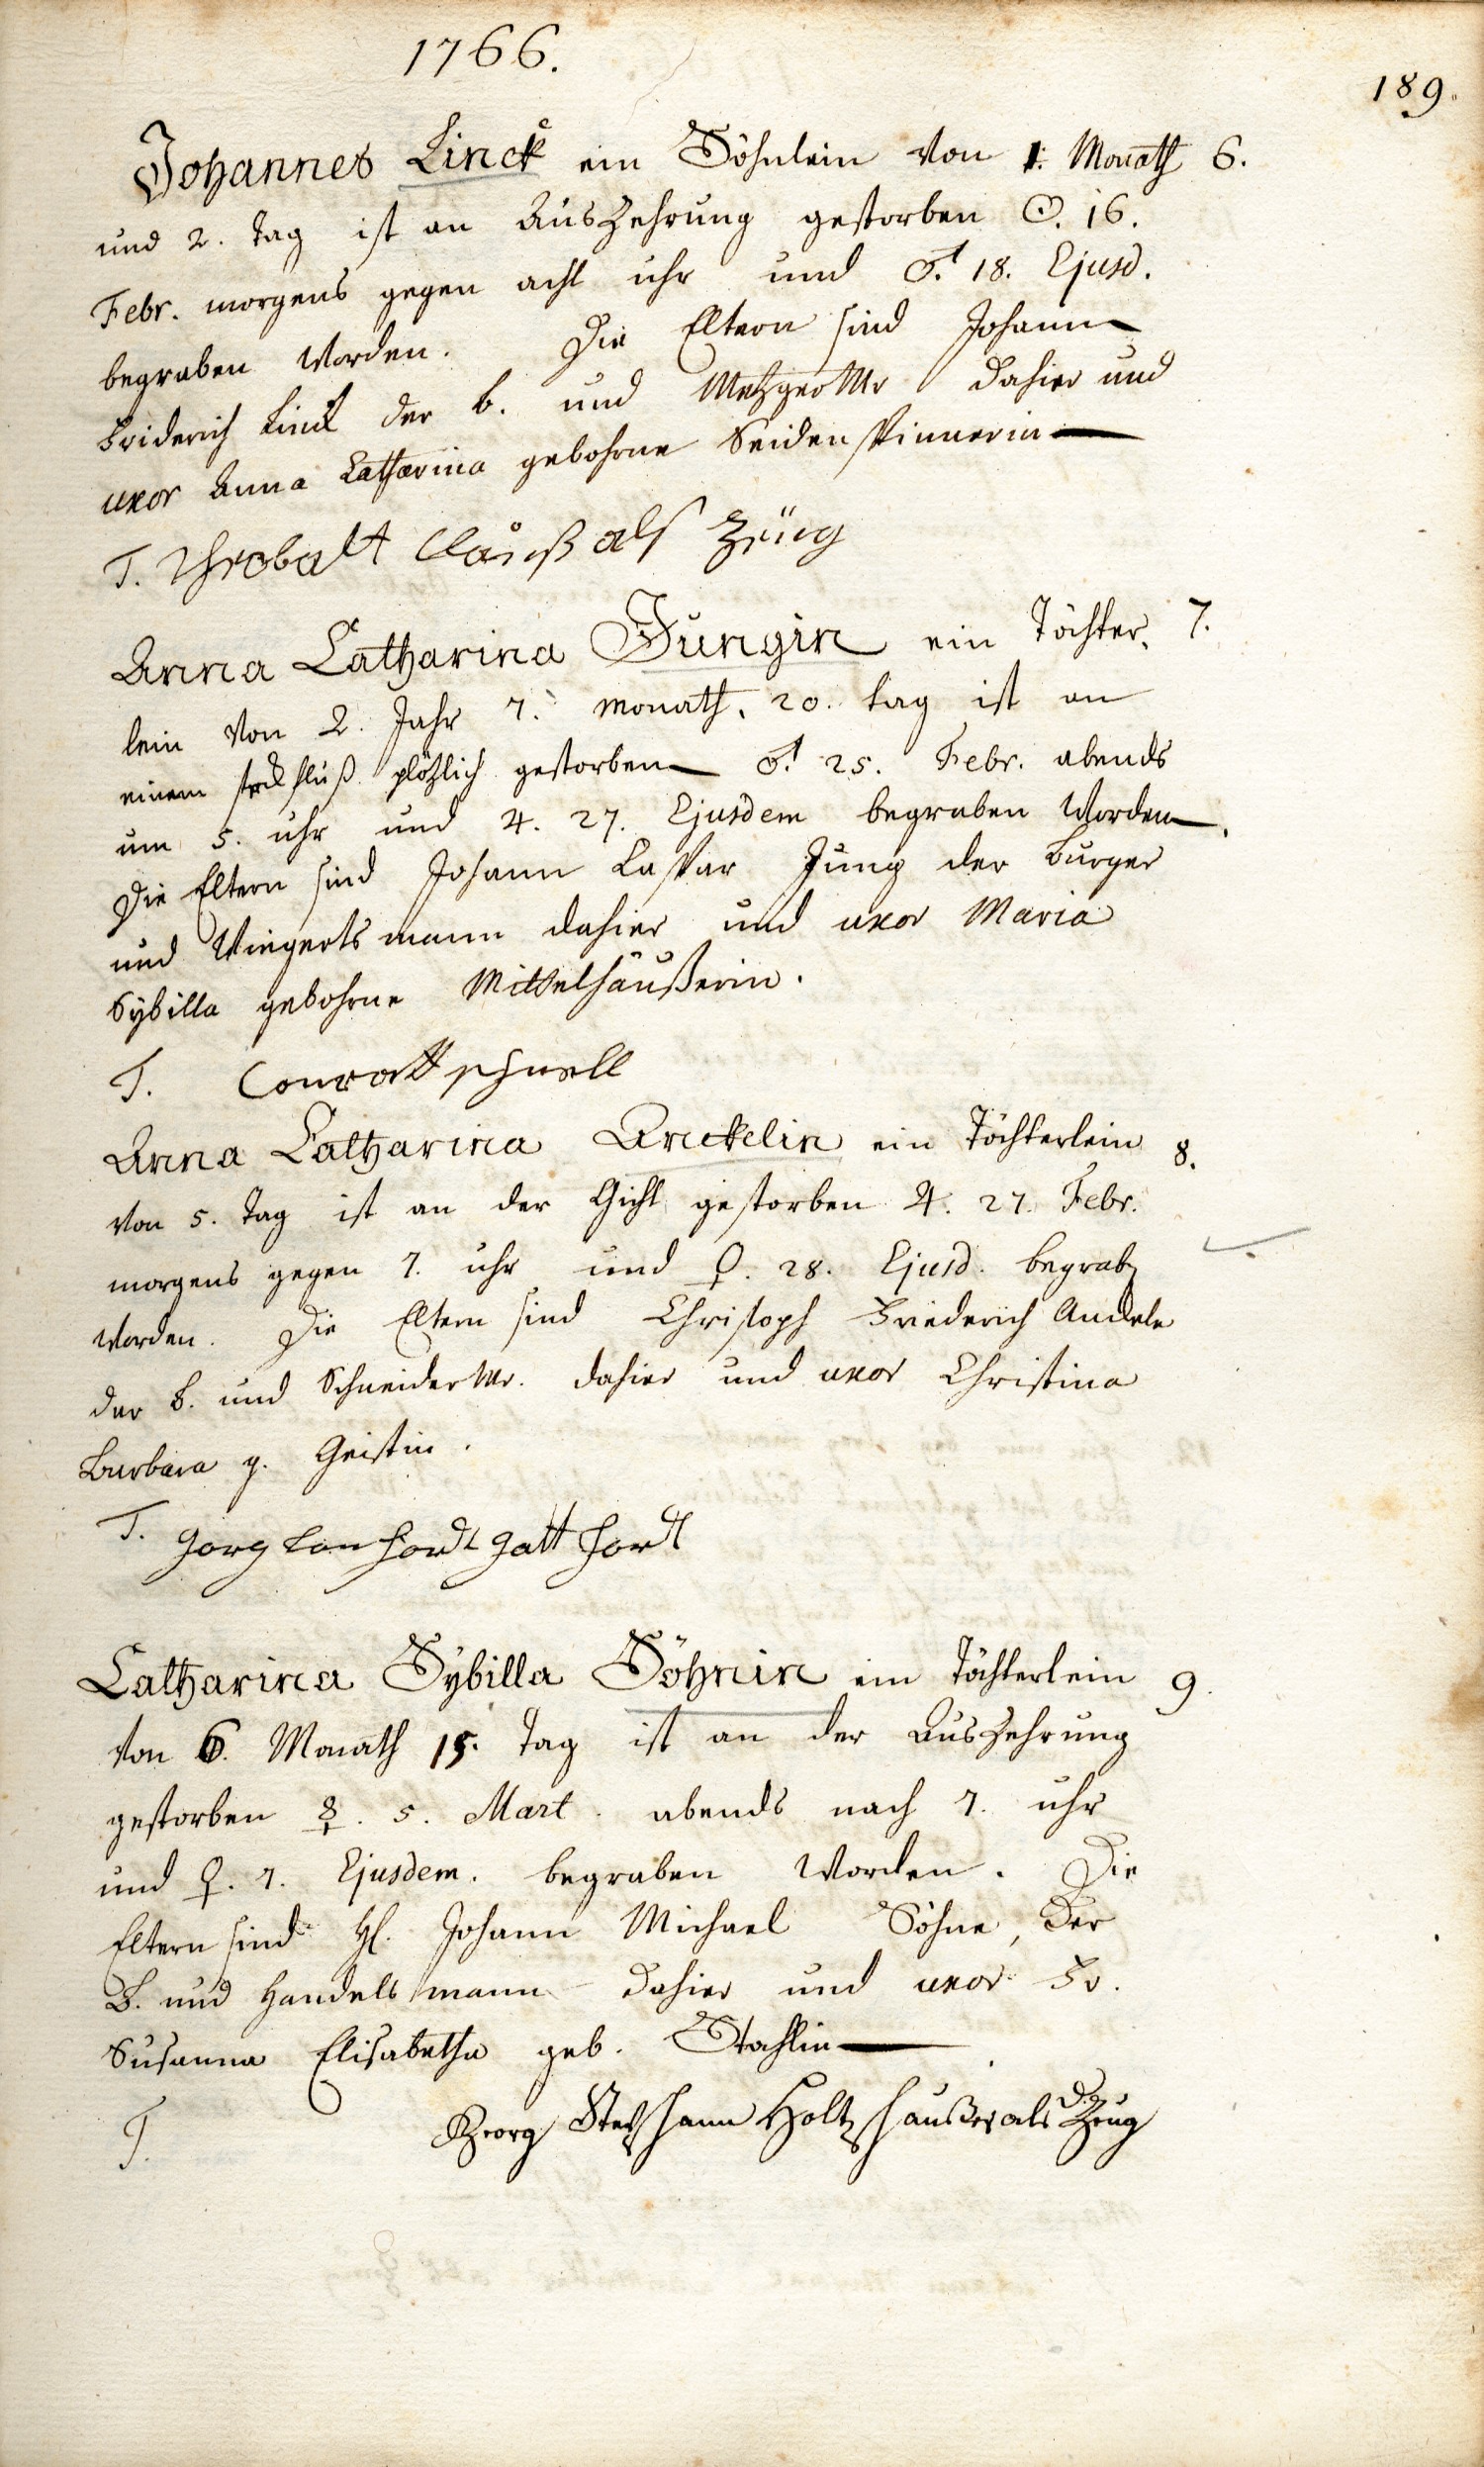 1766.
189.
Johannes Linck ein Söhnlein von 1. Monath 6.
und 2. Tag ist an Auszehrung gestorben ☉. 16.
Febr. morgens gegen acht uhr und ♂. 18. Ejusd.
begraben worden. Die Eltern sind Johann
Friderich Linck der b. und Metzger Mr dahier und
uxor Anna Catharina gebohrne Seidenspinnerin
T. Theobalt Clauß als Zeug
Anna Catharina Jungin ein Töchter- 7.
lein von 2. Jahr 7. Monath, 20. tag ist an
einem steckfluß plötzlich gestorben ♂. 25. Febr. abends
um 5. uhr und ♃. 27. Ejusdem begraben worden.
Die Eltern sind Johann Caspar Jung der burger
und Wingertsmann dahier und uxor Maria
Sybilla gebohrne Mittelhäußerin.
T. Conratt schnell
Anna Catharina Anckelin ein Töchterlein 8.
von 5. Tag ist an der Gicht gestorben ♃. 27. Febr.
morgens gegen 7. uhr und ♀. 28. Ejusd. begrab.
worden. Die Eltern sind Christoph Friederich
der b. und Schneider Mr. dahier und uxor Christina
Barbara g. Geistin.
T. Gorg
Catharina Sybilla Söhnin ein Töchterlein 9.
von 6. Monath 15. Tag ist an der Auszehrung
gestorben ☿. 5. Mart. abends nach 7. uhr
und ♀. 7. Ejusdem. begraben worden. Die
Eltern sind H. Johann Michael Söhne, der
B. und Handelsmann dahier und uxor Fr.
Susanna Elisabetha geb. Stahlin
T. Georg Holtzhaußer als Zeug